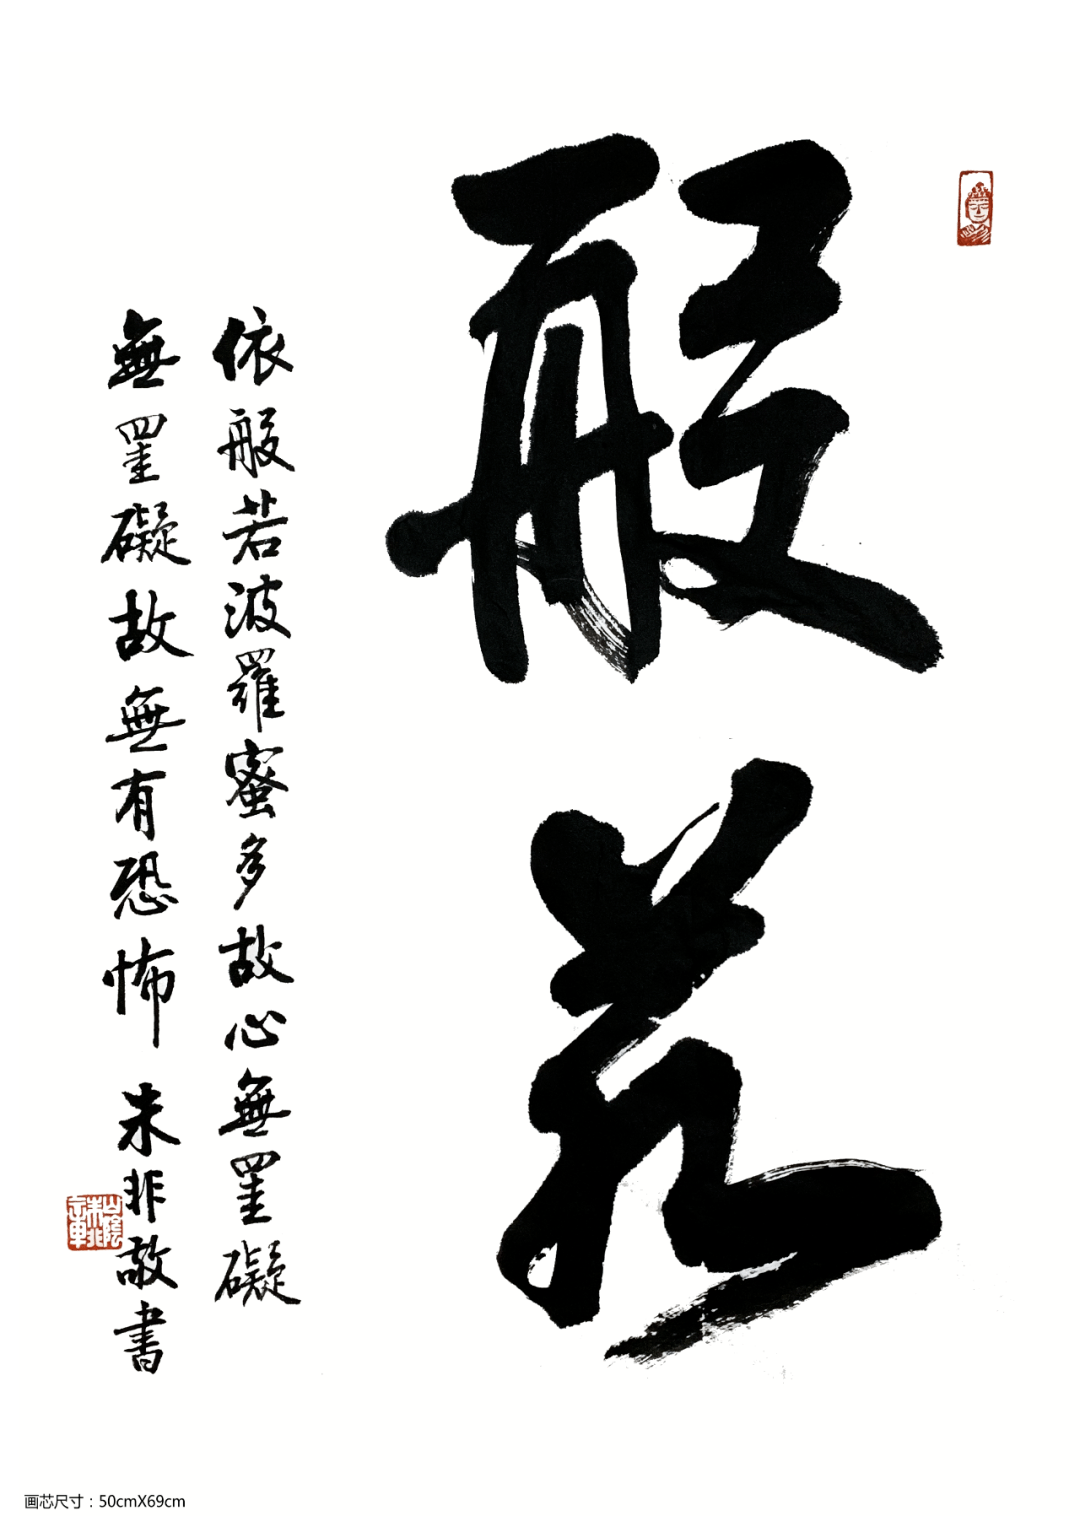 般若
依般若波羅蜜多故心無罣礙
無罣礙故無有恐怖 朱非敬書
画芯尺寸：50cmX69cm